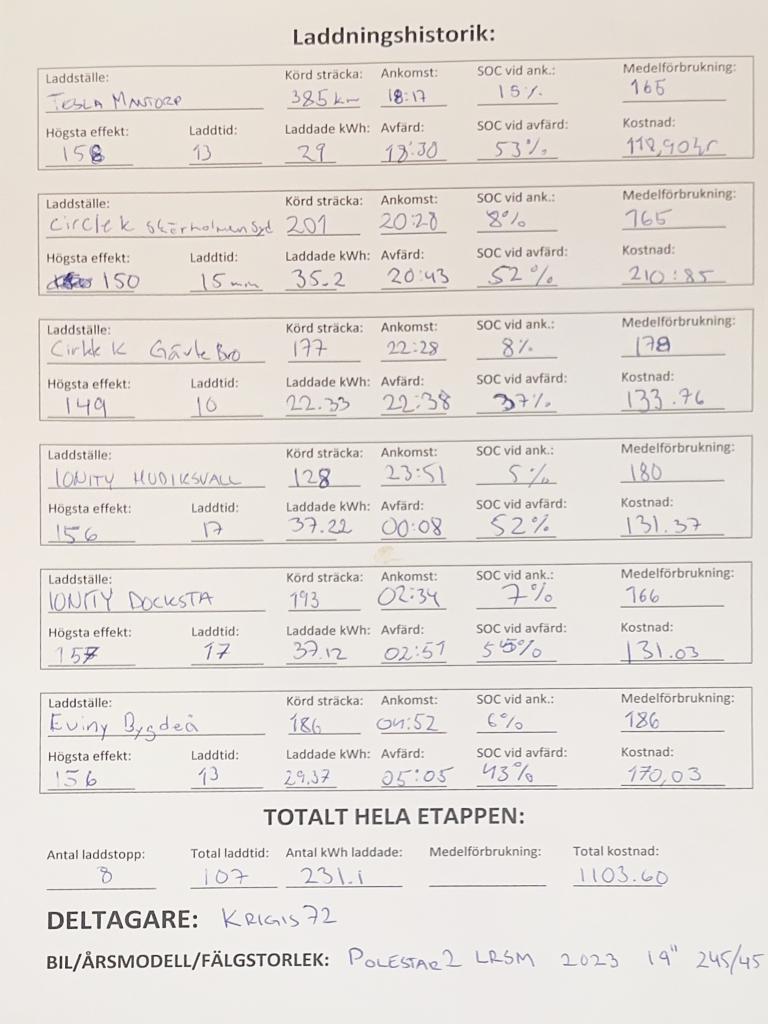 Laddningshistorik:
Laddställe: Körd sträcka: Ankomst: SOC vid ank.: Medelförbrukning:
TESLA MANTORP 385 km 18:17 15% 165
Högsta effekt: Laddtid: Laddade kWh: Avfärd: SOC vid avfärd: Kostnad:
158 13 29 18:30 53% 118,90kr
Laddställe: Körd sträcka: Ankomst: SOC vid ank.: Medelförbrukning:
Circle K Skärholmen Syd 201 20:28 8% 165
Högsta effekt: Laddtid: Laddade kWh: Avfärd: SOC vid avfärd: Kostnad:
150 15 min 35.2 20:43 52% 210:85
Laddställe: Körd sträcka: Ankomst: SOC vid ank.: Medelförbrukning:
Cirkle K Gävle Bro 177 22:28 8% 178
Högsta effekt: Laddtid: Laddade kWh: Avfärd: SOC vid avfärd: Kostnad:
149 10 22.33 22:38 37% 133.76
Laddställe: Körd sträcka: Ankomst: SOC vid ank.: Medelförbrukning:
IONITY HUDIKSVALL 128 23:51 5% 180
Högsta effekt: Laddtid: Laddade kWh: Avfärd: SOC vid avfärd: Kostnad:
156 17 37.22 00:08 52% 131.37
Laddställe: Körd sträcka: Ankomst: SOC vid ank.: Medelförbrukning:
IONITY DOCKSTA 193 02:34 7% 166
Högsta effekt: Laddtid: Laddade kWh: Avfärd: SOC vid avfärd: Kostnad:
157 17 37.12 02:51 55% 131.03
Laddställe: Körd sträcka: Ankomst: SOC vid ank.: Medelförbrukning:
Eviny Bygdeå 186 04:52 6% 186
Högsta effekt: Laddtid: Laddade kWh: Avfärd: SOC vid avfärd: Kostnad:
156 13 29.37 05:05 43% 170,03
TOTALT HELA ETAPPEN:
Antal laddstopp: Total laddtid: Antal kWh laddade: Medelförbrukning: Total kostnad:
8 107 231.1 1103.60
DELTAGARE: KRIGIS72
BIL/ÅRSMODELL/FÄLGSTORLEK: POLESTAR2 LRSM 2023 19" 245/45